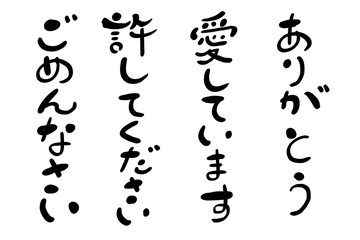 ありがとう
愛しています
許してください
ごめんなさい